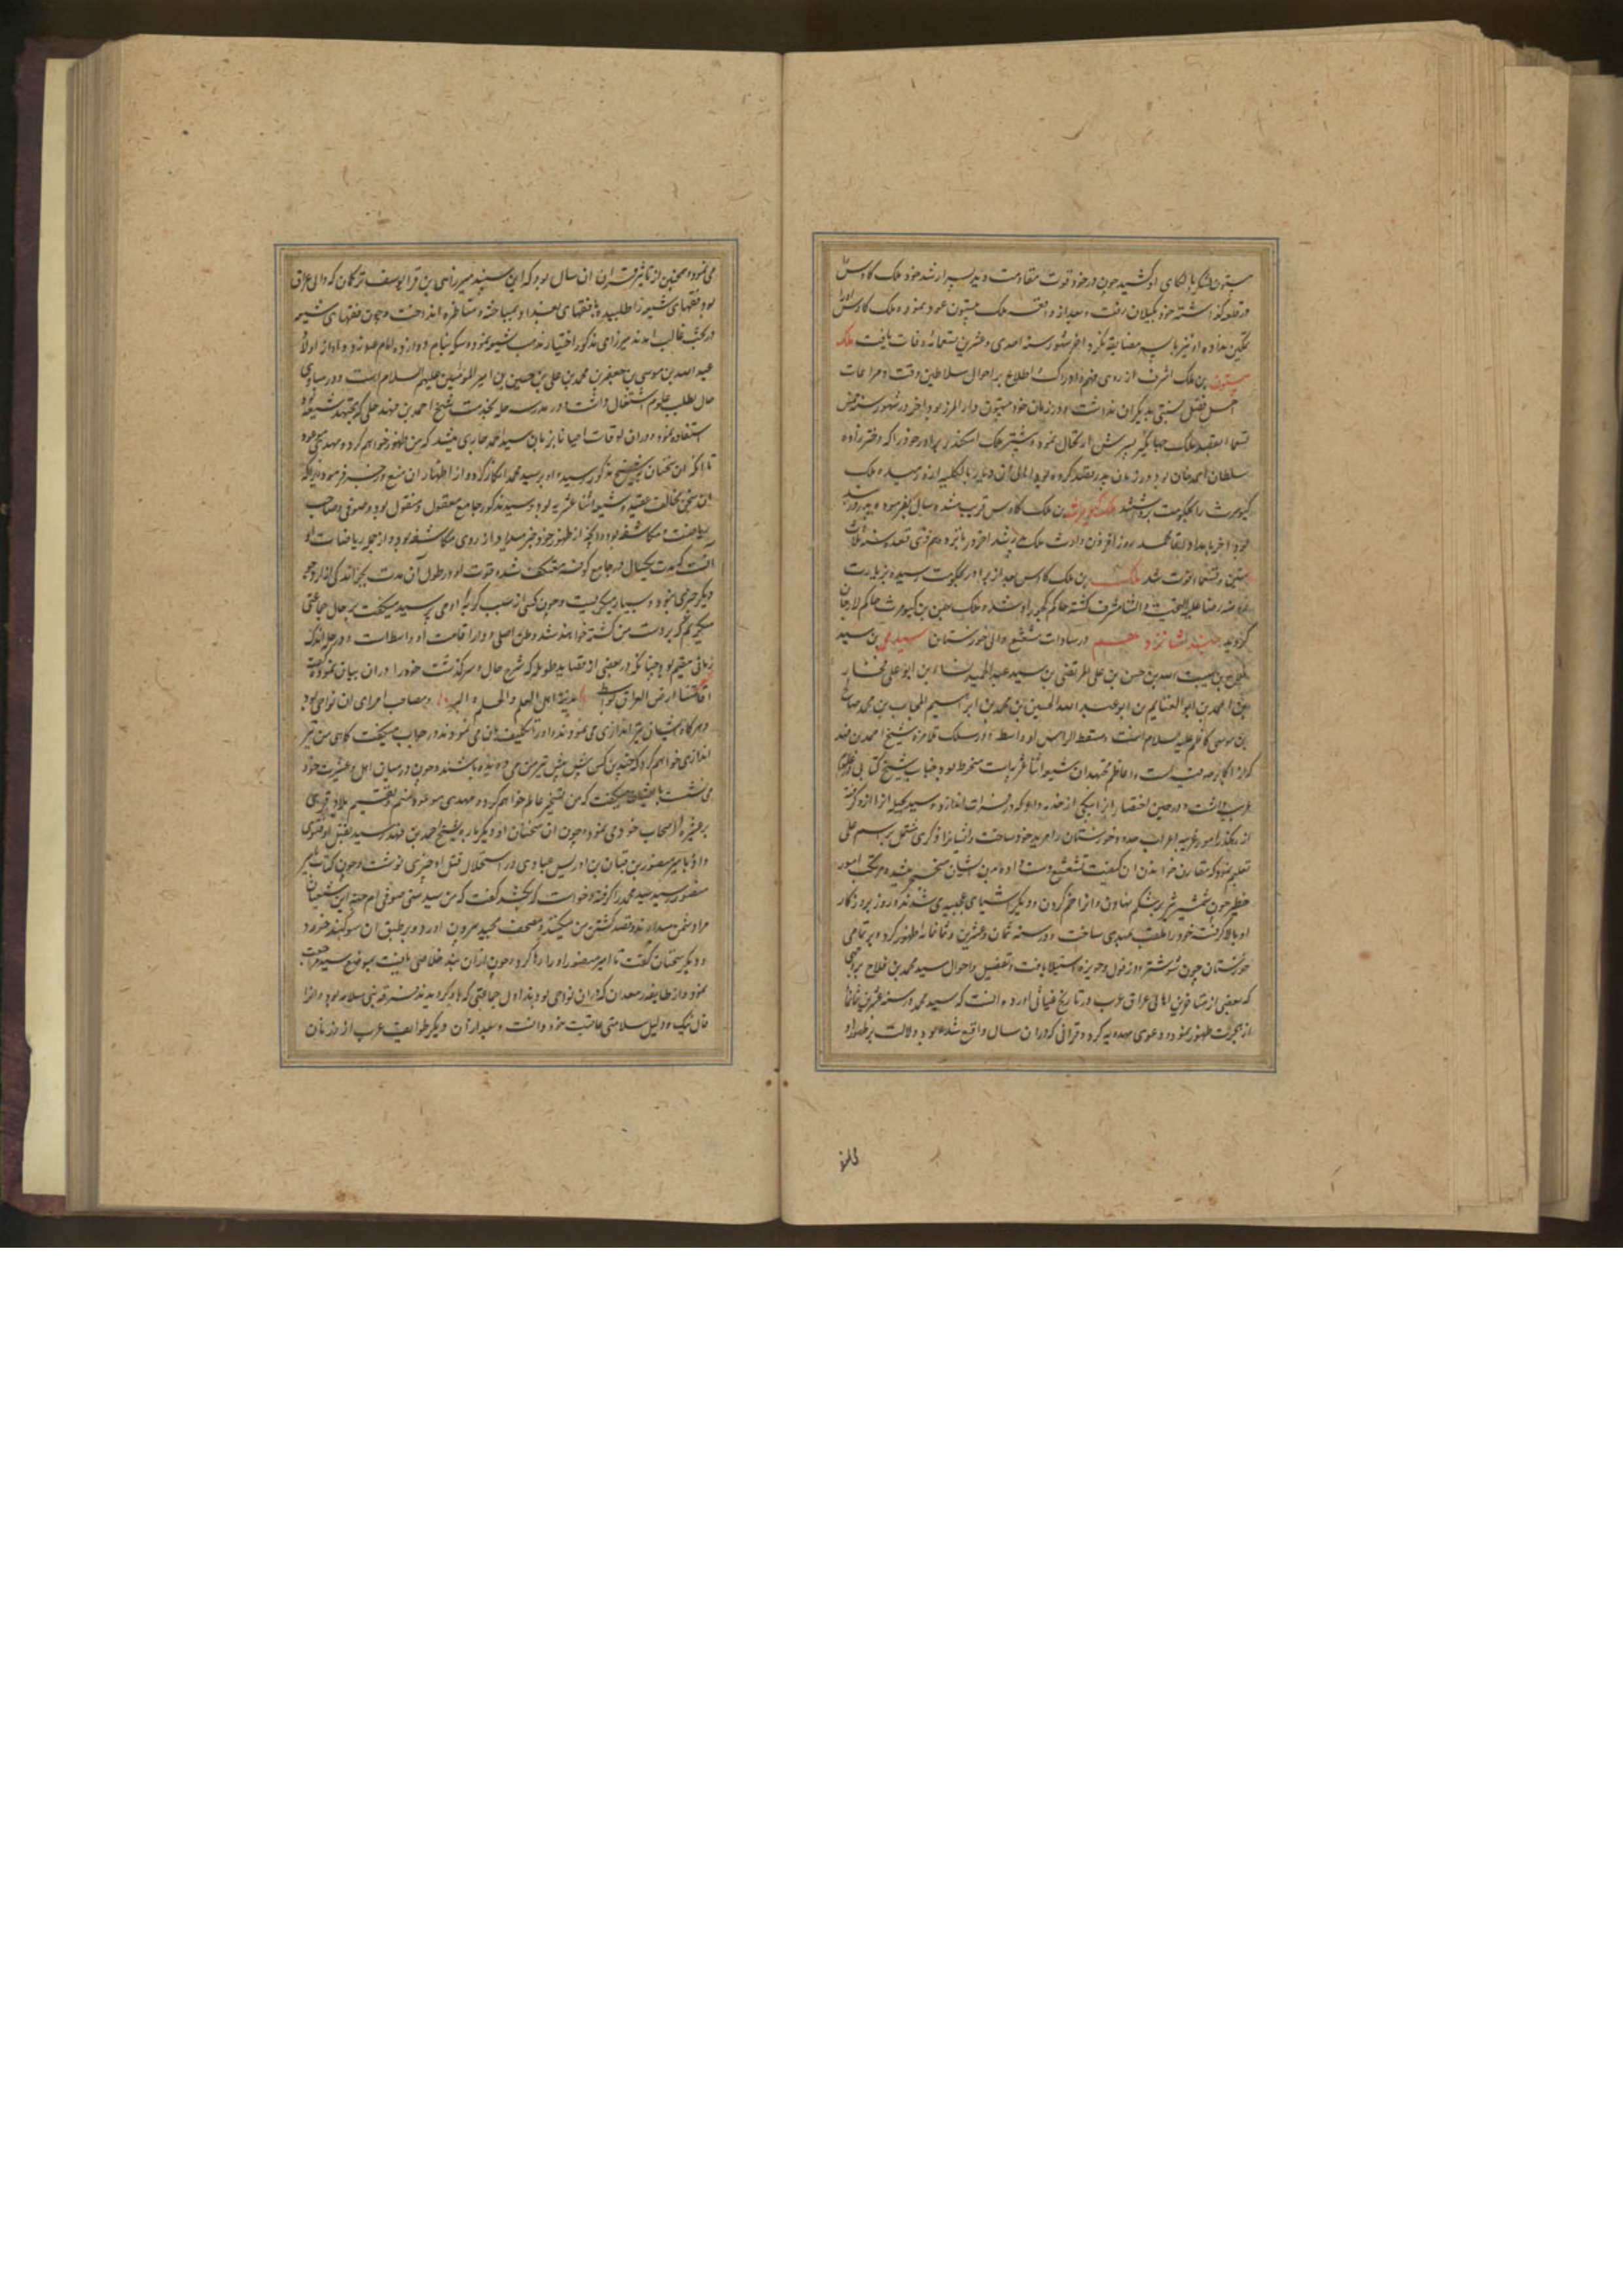 بیستون لشکر بالکای او کشید چون در خود قوت مقاومت ندید پسر ارشد خود ملک کاوس را
در قلعه گذاشته خود بگیلان رفت و بعد از واقعه ملک بیستون عود نمود و ملک کاوس او را
تمکین نداده او نیز با پسر مضایقه نکرد اخر شهور سنه احدی و عشرین و تسعمائه وفات یافت ملک
بیستون بن ملک اشرف از روی فهم و ادراک و اطلاع بر احوال سلاطین وقت و مراعات
اهل فضل نسبتی بدیگران نداشت و در زمان خود بیستون دار المرز بود و اخر در شهور سنه
ملک جهانگیر پسرش ارتحال نمود و بیشتر ملک اسکندر برادر خود را که دختر زاده
سلطان احمد خان بود در زمان پدر بقتل آورده بود
کیومرث را بحکومت برداشتند ملک کیومرث بن ملک کاوس قریب شصت سال
ستین و تسعمائه فوت شد ملک بن ملک کاوس بعد از برادر بحکومت رسید و بزیارت
روضه رضا علیه التحیه و الثنا مشرف گشته حاکم کجور و ملک بن کیومرث حاکم لارجان
گردید جند شانزدهم در سادات مشعشع والی خوزستان سید محمد بن سید
فلاح بن هیبت الله بن حسن بن علی المرتضی بن سید عبد الحمید نسابه بن ابو علی فخار
بن احمد بن ابو الغنایم بن ابو عبد الله الحسین بن محمد بن ابراهیم المجاب بن محمد صالح
بن موسی کاظم علیه السلام است و مسقط الراس او واسط و در سلک تلامذه شیخ احمد بن فهد
که از اکابر صوفیه و اعاظم مجتهدان شیعه اثنا عشریه است منخرط بود و جناب شیخ کتابی در علوم
غریبه داشت و در حین احتضار انرا بیکی از خدمه داد که در فرات اندازد و سید بحیله انرا ازو گرفته
از رهگذر امور غریبه اعراب حدود خوزستان را مرید خود ساخت و ایشانرا ذکری مشتمل بر اسم علی
تعلیم نمود که مقارن خواندن ان کیفیت تشعشع دست داده بدن ایشان متحجر میشد و مرتکب امور
خطیر چون شمشیر بر شکم نهادن و انرا خم کردن و دیگر اشیای عجیبه می‌شدند و روز بروز کار
او بالا گرفته خود را ملقب بمهدی ساخت و در سنه ثمان و عشرین و ثمانمائه ظهور کرد و بر تمامی
خوزستان چون شوشتر و دزفول و حویزه استیلا یافت و تفصیل احوال سید محمد بن فلاح بروجهی
که بعضی از متاخرین اهالی عراق عرب در تاریخ غیاثی اورده انست که سید محمد در سنه عشرین و ثمانمائه
از هجرت ظهور نمود و دعوی مهدویه کرد و قرانی که در ان سال واقع شده بود دلالت بر ظهور او
می نمود و همچنین از تاثیر قران ان سال بود که این سپند میرزا بن قرا یوسف ترکمان که والی عراق
بود فقهای شیعه را طلبیده با فقهای بغداد بمباحثه و مناظره انداخت و چون فقهای شیعه
در بحث غالب امدند میرزای مذکور اختیار مذهب شیعه نموده سکه بنام دوازده امام علیهم السلام زد و او از اولاد
عبد الله بن موسی بن جعفر بن محمد بن علی بن حسین بن امیر المومنین علیهم السلام است و در مبادی
حال بطلب علوم اشتغال داشت و در مدرسه حله بخدمت شیخ احمد بن فهد حلی که مجتهد شیعه بود
استفاده نمود و در ان اوقات احیانا بزبان سید محمد جاری میشد که من ظهور خواهم کرد و مهدی موعود
تا انکه ان سخنان بشیخ مذکور رسید و او بر سید محمد انکار کرده و از اظهار ان منع و زجر فرمود زیرا که
ان سخن مخالف عقیده شیعه اثنا عشریه بود و سید مذکور جامع معقول و منقول بود و صوفی و صاحب
ریاضت و مکاشفه بود و انچه از ظهور خود خبر میداد از روی مکاشفه بود و از جمله ریاضات او
انست که مدت یکسال در جامع کوفه معتکف شده و قوت او در طول آن مدت بجز اندکی ارد جو
دیگر چیزی نبود و بسیار میگریست و چون کسی از سبب گریه او می پرسید میگفت بر حال جماعتی
میگریم که بر دست من کشته خواهند شد و وطن اصلی و دار اقامت او واسط است و در حله اندک
زمانی مقیم بود چنانکه در بعضی از قصاید طویله که شرح حال و سرگذشت خود را در ان بیان نموده گفته
اقامتنا ارض العراق بواسط مدینة اهل العلم والحلم و البر و مصاحب امرای ان نواحی بود
و هر گاه ایشان تیر اندازی می نمودند و او را تکلیف بان می نمودند در جواب میگفت گاهی من تیر
اندازی خواهم کرد که چندین کس پیش پیش تیر من می دویده باشند و چون در میان اهل و عشیرت خود
می نشست با ایشان میگفت که من تسخیر عالم خواهم کرد و مهدی موعود منم و تقسیم بلاد و قری
بر عشیره و اصحاب خود می نمود و چون ان سخنان او دیگر بار بشیخ احمد بن فهد رسید بقتل او فتوی
داد و بامیر منصور بن قبان بن ادریس عبادی در استحلال قتل او چیزی نوشت و چون کتاب بامیر
منصور رسید سید محمد را گرفته و خواست که بکشد گفت که من سید سنی صوفی ام جهت این شیعیان
مرا دشمن میدارند و قصد کشتن من میکنند و مصحف مجید بیرون اورد و بر طبق ان سوگند خورد
و دیگر سخنان گفت تا امیر منصور او را رها کرد و چون ازان بند خلاصی یافت بموضع رسید مراجعت
نمود و از طایفه معدان که در ان نواحی بودند اول جماعتی که باو گرویدند فرقه بنی سلامه بود و انرا
فال نیک و دلیل سلامتی عاقبت خود دانست و بعد از آن دیگر طوایف عرب از رزنان